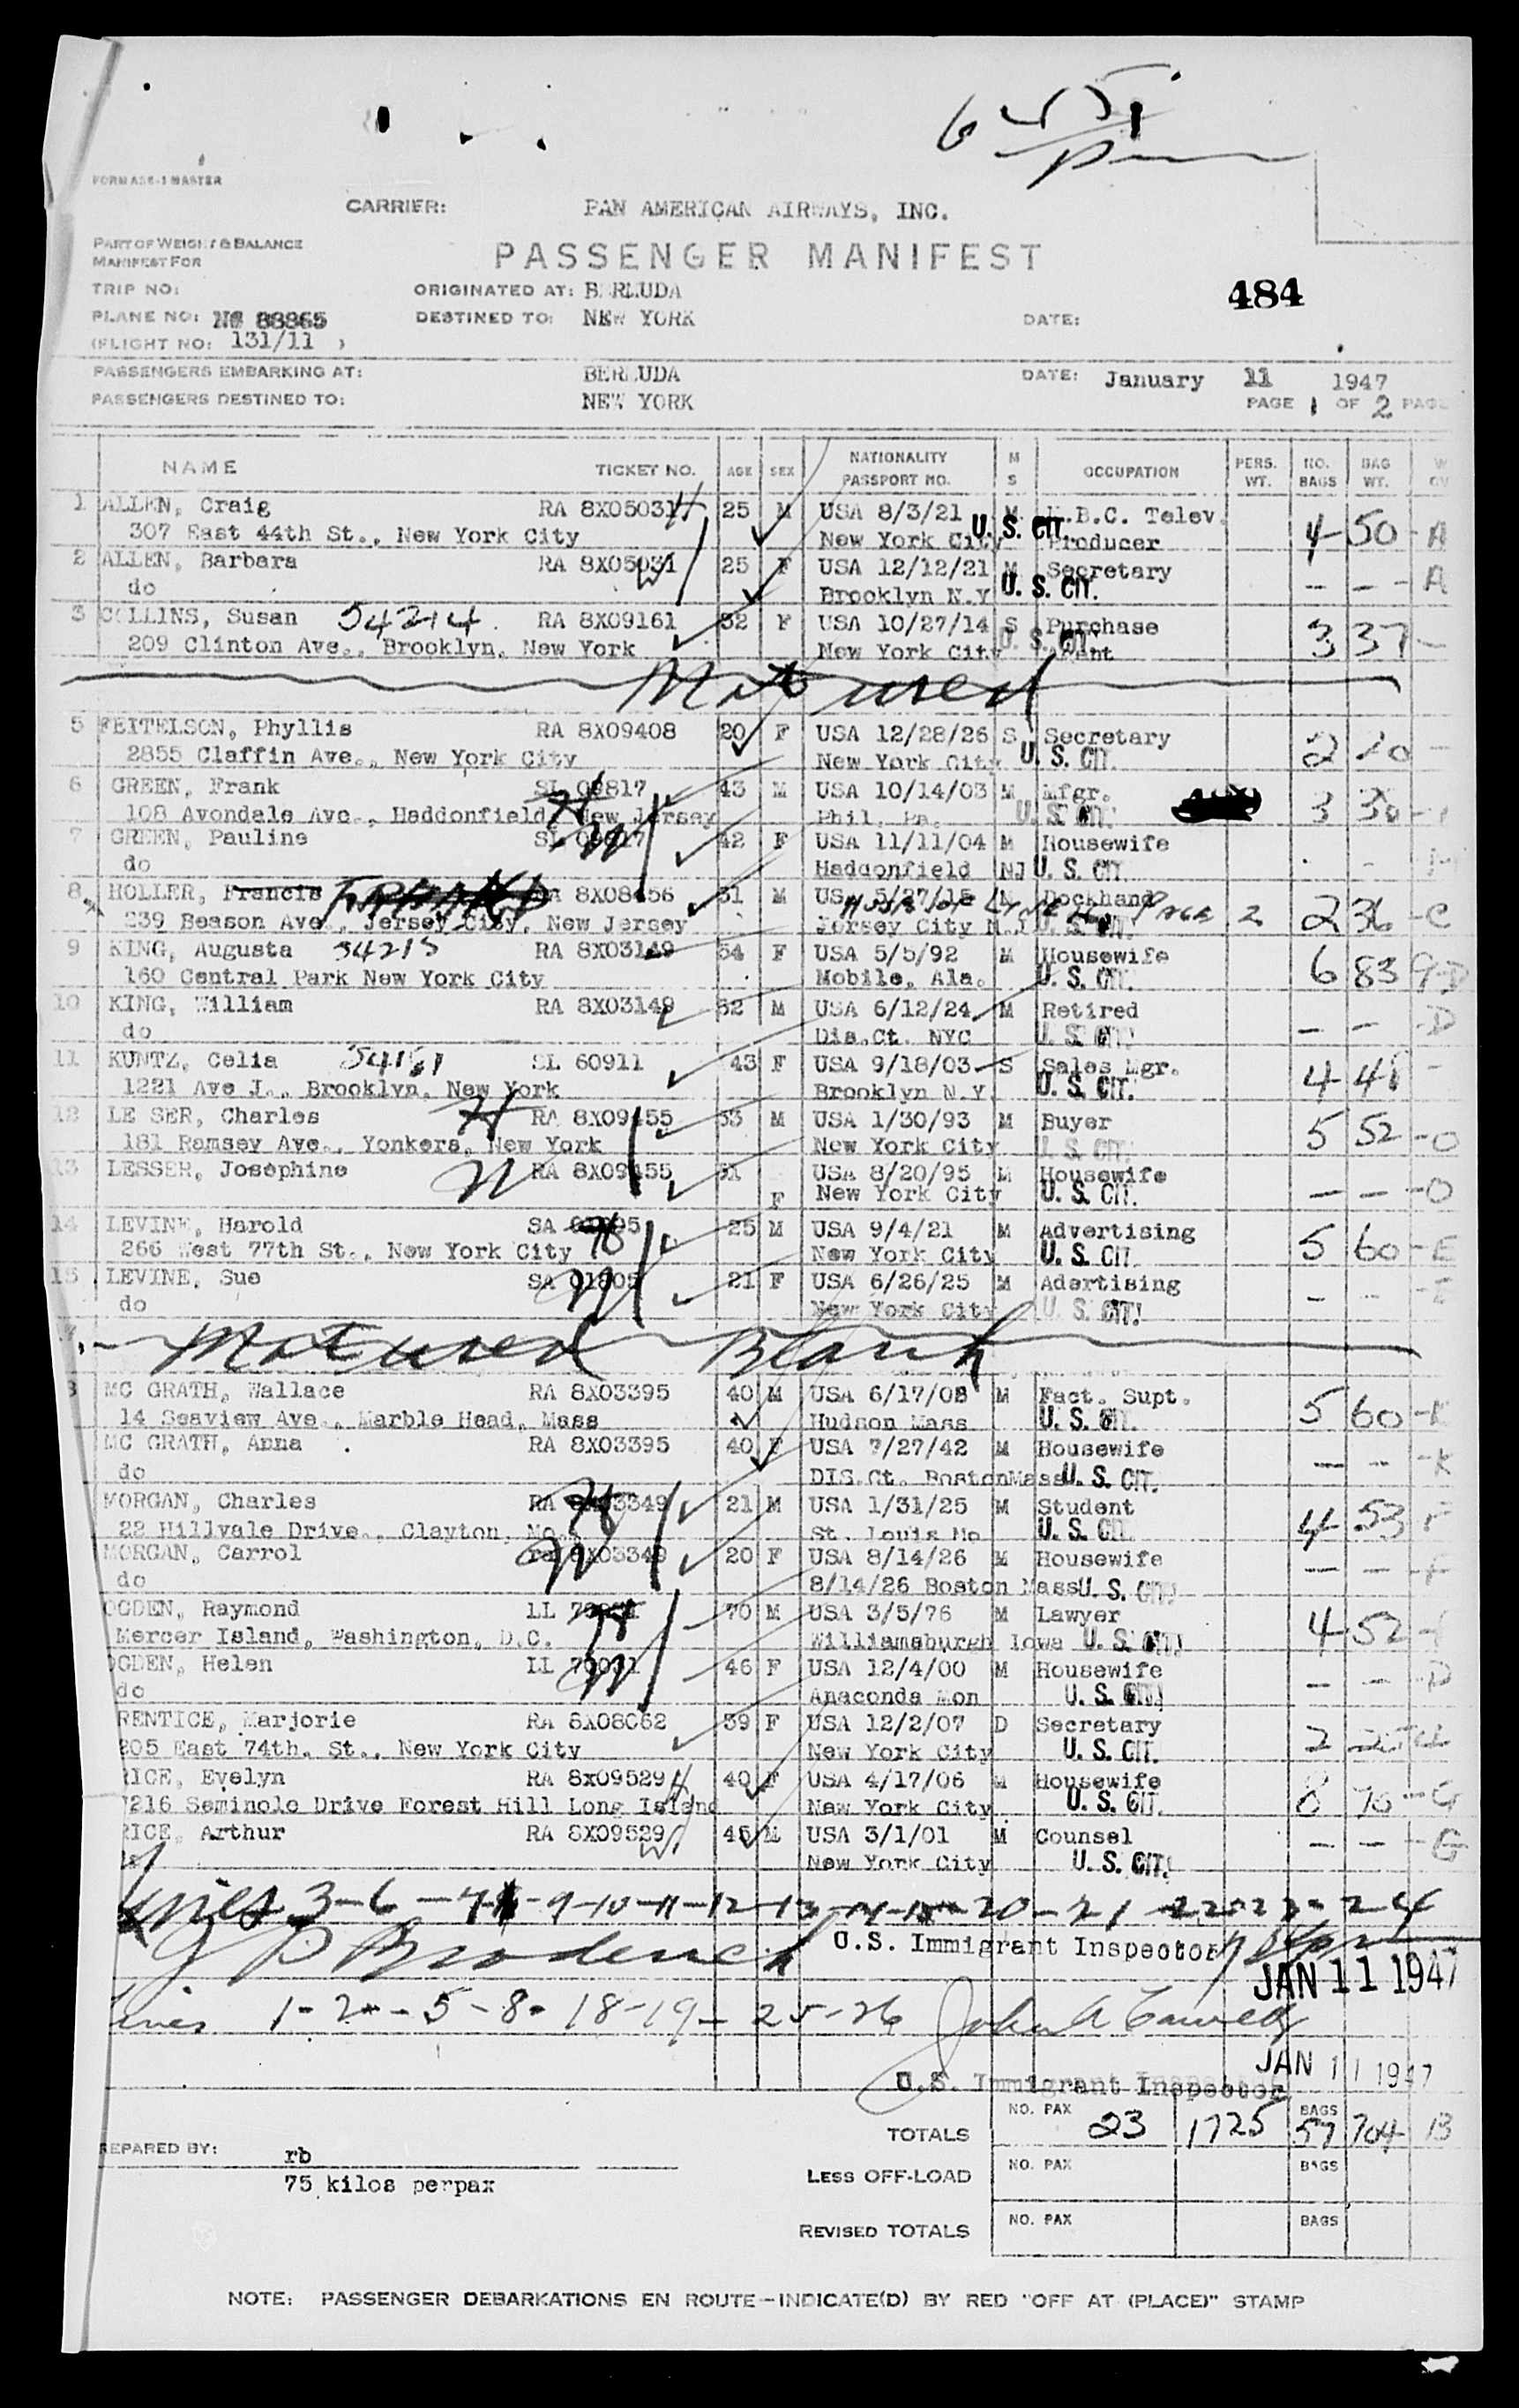 FORM ASE-1 MASTER
CARRIER: PAN AMERICAN AIRWAYS, INC.
PART OF WEIGHT & BALANCE
MANIFEST FOR
PASSENGER MANIFEST
TRIP NO:
ORIGINATED AT: BERMUDA
484
PLANE NO: NC 88865
DESTINED TO: NEW YORK
DATE:
(FLIGHT NO: 131/11 )
PASSENGERS EMBARKING AT: BERMUDA DATE: January 11 1947
PASSENGERS DESTINED TO: NEW YORK PAGE 1 OF 2 PAGE
NAME TICKET NO. AGE SEX NATIONALITY PASSPORT NO. M S OCCUPATION PERS. WT. NO. BAGS BAG WT.
1 ALLEN, Craig RA 8X05031 H 25 M USA 8/3/21 M N.B.C. Telev. 4 50 - A
307 East 44th St., New York City New York City U. S. CIT. Producer
2 ALLEN, Barbara RA 8X05031 W 25 F USA 12/12/21 M Secretary - - - A
do Brooklyn N.Y U. S. CIT.
3 COLLINS, Susan 54214 RA 8X09161 32 F USA 10/27/14 S Purchase 3 37 -
209 Clinton Ave., Brooklyn, New York New York City U. S. CIT.
Not used
5 FEITELSON, Phyllis RA 8X09408 20 F USA 12/28/26 S Secretary 2 20 -
2855 Claffin Ave., New York City New York City U. S. CIT.
6 GREEN, Frank SL 09817 H 43 M USA 10/14/03 M Mfgr. 3 30 -
108 Avondale Ave., Haddonfield, New Jersey Phil. Pa. U. S. CIT.
7 GREEN, Pauline SL 09817 W 42 F USA 11/11/04 M Housewife - -
do Haddonfield NJ U. S. CIT.
8 HOLLER, Francis RA 8X08456 31 M USA 5/27/15 M Dockhand 2 36 - C
239 Beason Ave., Jersey City, New Jersey Jersey City N.J U. S. CIT. Page 2
9 KING, Augusta 54215 RA 8X03149 54 F USA 5/5/92 M Housewife 6 83 9-D
160 Central Park New York City Mobile, Ala. U. S. CIT.
10 KING, William RA 8X03149 52 M USA 6/12/24 M Retired - - -D
do Dis.Ct. NYC U. S. CIT.
11 KUNTZ, Celia SL 60911 43 F USA 9/18/03 S Sales Mgr. 4 48 -
1221 Ave J., Brooklyn, New York Brooklyn N.Y. U. S. CIT.
12 LE SER, Charles H RA 8X09455 53 M USA 1/30/93 M Buyer 5 52 -O
181 Ramsey Ave., Yonkers, New York New York City U. S. CIT.
13 LESSER, Josephine W RA 8X09455 51 F USA 8/20/95 M Housewife - - -O
New York City U. S. CIT.
14 LEVINE, Harold SA H 25 M USA 9/4/21 M Advertising 5 60 -E
266 West 77th St., New York City New York City U. S. CIT.
15 LEVINE, Sue SA 01805 W 21 F USA 6/26/25 M Adertising - - -E
do New York City U. S. CIT.
Not used Blank
MC GRATH, Wallace RA 8X03395 40 M USA 6/17/08 M Fact. Supt. 5 60 -K
14 Seaview Ave., Marble Head, Mass Hudson Mass U. S. CIT.
MC GRATH, Anna RA 8X03395 40 F USA 7/27/42 M Housewife - - -K
do DIS.Ct. BostonMass U. S. CIT.
MORGAN, Charles RA 8X03349 H 21 M USA 1/31/25 M Student 4 53 F
22 Hillvale Drive., Clayton, Mo. St. Louis Mo U. S. CIT.
MORGAN, Carrol ra 8X03349 W 20 F USA 8/14/26 M Housewife - - -F
do 8/14/26 Boston Mass U. S. CIT.
OGDEN, Raymond LL H 70 M USA 3/5/76 M Lawyer 4 52
Mercer Island, Washington, D.C. Williamsburgh Iowa U. S. CIT.
OGDEN, Helen LL W 46 F USA 12/4/00 M Housewife - - -D
do Anaconda Mon U. S. CIT.
RENTICE, Marjorie RA 8X08062 39 F USA 12/2/07 D Secretary 2 25
205 East 74th. St., New York City New York City U. S. CIT.
RICE, Evelyn RA 8x09529 H 40 F USA 4/17/06 M Housewife 8 70 -G
216 Seminole Drive Forest Hill Long Island New York City U. S. CIT.
RICE, Arthur RA 8X09529 W 45 M USA 3/1/01 M Counsel - - -G
New York City U. S. CIT.
Lines 3-6-7-9-10-11-12-13-14-15-20-21-22-23-24
J P Broderick U.S. Immigrant Inspector
JAN 11 1947
Lines 1-2-5-8-18-19-25-26
JAN 11 1947
U.S. Immigrant Inspector
TOTALS NO. PAX 23 1725 BAGS 57 704 13
EPARED BY: rb
75 kilos perpax
LESS OFF-LOAD NO. PAX BAGS
REVISED TOTALS NO. PAX BAGS
NOTE: PASSENGER DEBARKATIONS EN ROUTE-INDICATE(D) BY RED "OFF AT (PLACE)" STAMP